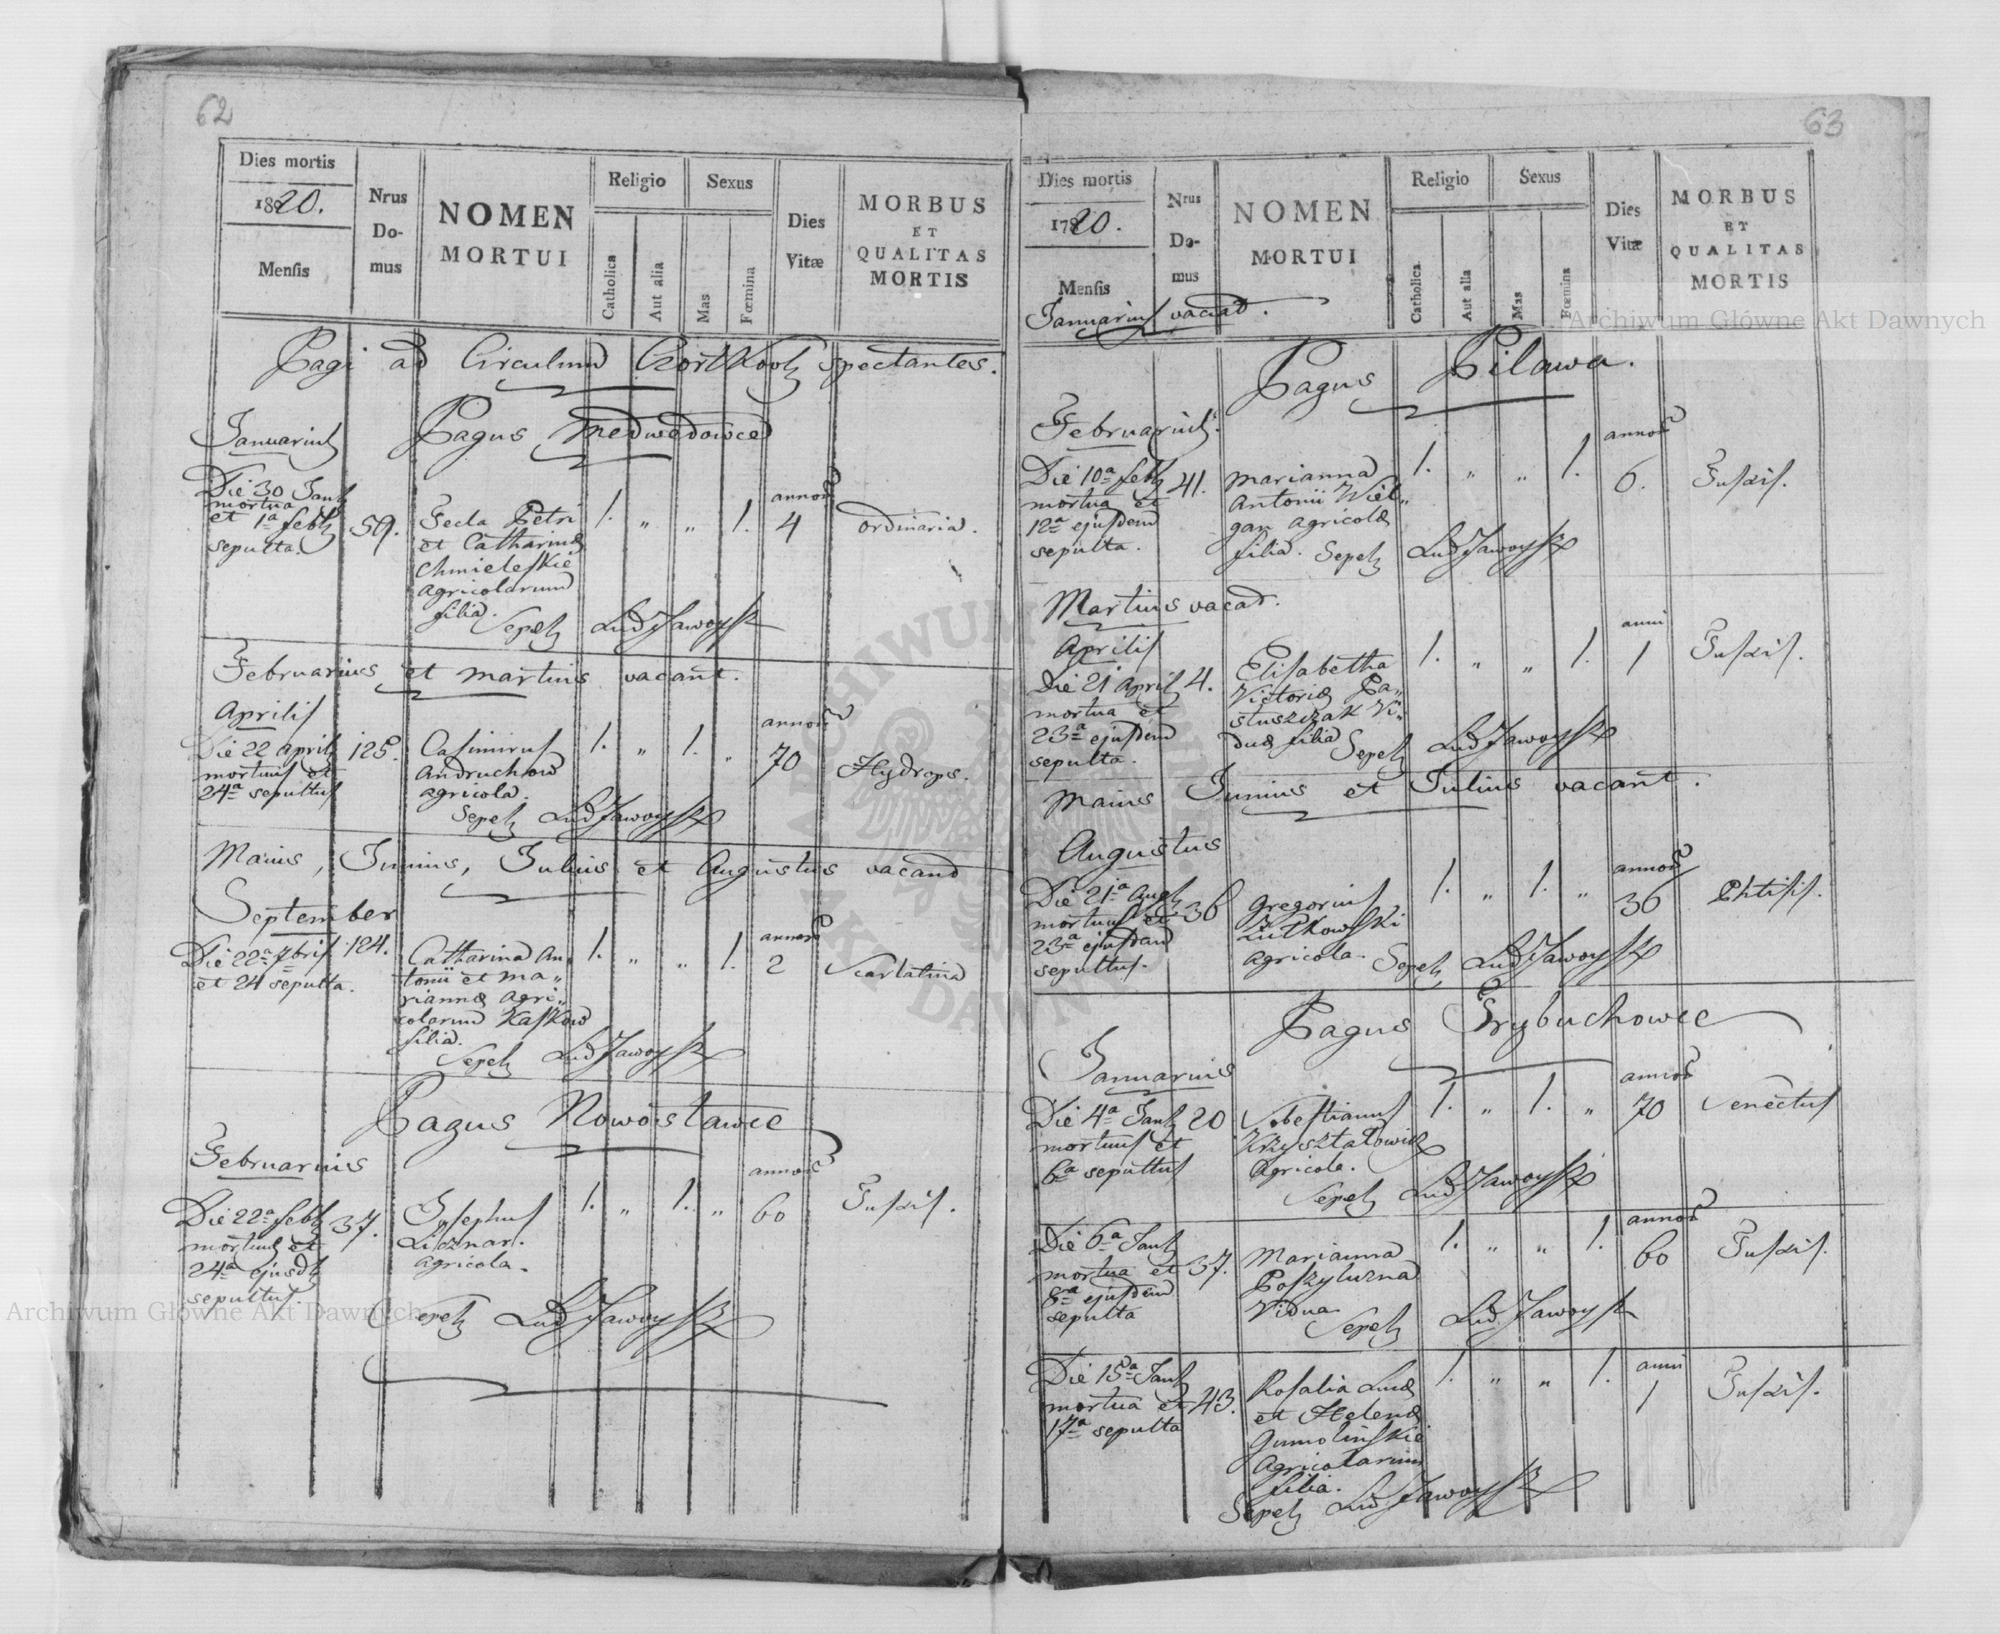 62
Dies mortis
1820.
Mensis
Nrus
Do-
mus
NOMEN
MORTUI
Religio
Catholica
Aut alia
Sexus
Mas
Fœmina
Dies
Vitæ
MORBUS
ET
QUALITAS
MORTIS
Pagi ad Circulum Czortkov spectantes.
Januarius
Pagus Medwedowce
Die 30 Jan
mortua
et 1a feb
sepulta.
59.
Tecla Petri
et Catharinæ
Chmieleskie
agricolarum
filia.
1. " " 1.
annor
4
ordinaria.
Sepel Lud Jaworsk
Februarius et Martius vacant.
Aprilis
Die 22 April
mortuus et
24a sepultus
125.
Casimirus
Andruchow
agricola.
1. " 1. "
annor
70
Hydrops.
Sepel Lud Jaworsk
Maius, Junius, Julius et Augustus vacant
September
Die 22a 7bris
et 24 sepulta.
124.
Catharina An
tonii et Ma"
riannæ agri"
colarum Kaskow
filia.
1. " " 1.
annor
2
Scarlatina
Sepel Lud Jaworsk
Pagus Nowostawce
Februarius
Die 22a feb
mortuus et
24a ejusd
sepultus.
37.
Josephus
Licznar.
agricola.
1. " 1. "
annor
60
Tussis.
Sepel Lud Jaworsk
63
Dies mortis
1720.
Mensis
Januarius vacat.
Nrus
Do-
mus
NOMEN
MORTUI
Religio
Catholica
Aut alia
Sexus
Mas
Fœmina
Dies
Vitæ
MORBUS
ET
QUALITAS
MORTIS
Pagus Pilawa.
Februarius.
Die 10a feb
mortua et
12a ejusdem
sepulta.
41.
Marianna
Antonii Wiel"
gan agricolæ
filia.
1. " " 1.
annor
6.
Tussis.
Sepel Lud Jaworsk
Martius vacat.
Aprilis
Die 21 April
mortua et
23a ejusdem
sepulta.
4.
Elisabetha
Victoriæ Pa"
stuszczak Vi"
duæ filia
1. " " 1.
anni
1
Tussis.
Sepel Lud Jaworsk
Maius Junius et Julius vacant.
Augustus
Die 21a Aug
mortuus et
23a ejusdem
sepultus.
36
Gregorius
Zulkowski
agricola.
1. " 1. "
annor
36
Phtisis.
Sepel Lud Jaworsk
Pagus Trybuchowce
Januarius
Die 4a Jan
mortuus et
6a sepultus
20
Sebestianus
Krzysztalowicz
Agricola.
1. " 1. "
annor
70
Senectus
Sepel Lud Jaworsk
Die 6a Jan
mortua et
8a ejusdem
sepulta
37.
Marianna
Poszyluzna
Vidua.
1. " " 1.
annor
60
Tussis.
Sepel Lud Jaworsk
Die 15a Jan
mortua et
17a sepulta
43.
Rosalia Lucæ
et Helenæ
Gumolinskie
Agricolarum
filia.
1. " " 1.
anni
1
Tussis.
Sepel Lud Jaworsk
Archiwum Główne Akt Dawnych
Archiwum Główne Akt Dawnych
ARCHIWUM GŁÓWNE AKT DAWNYCH